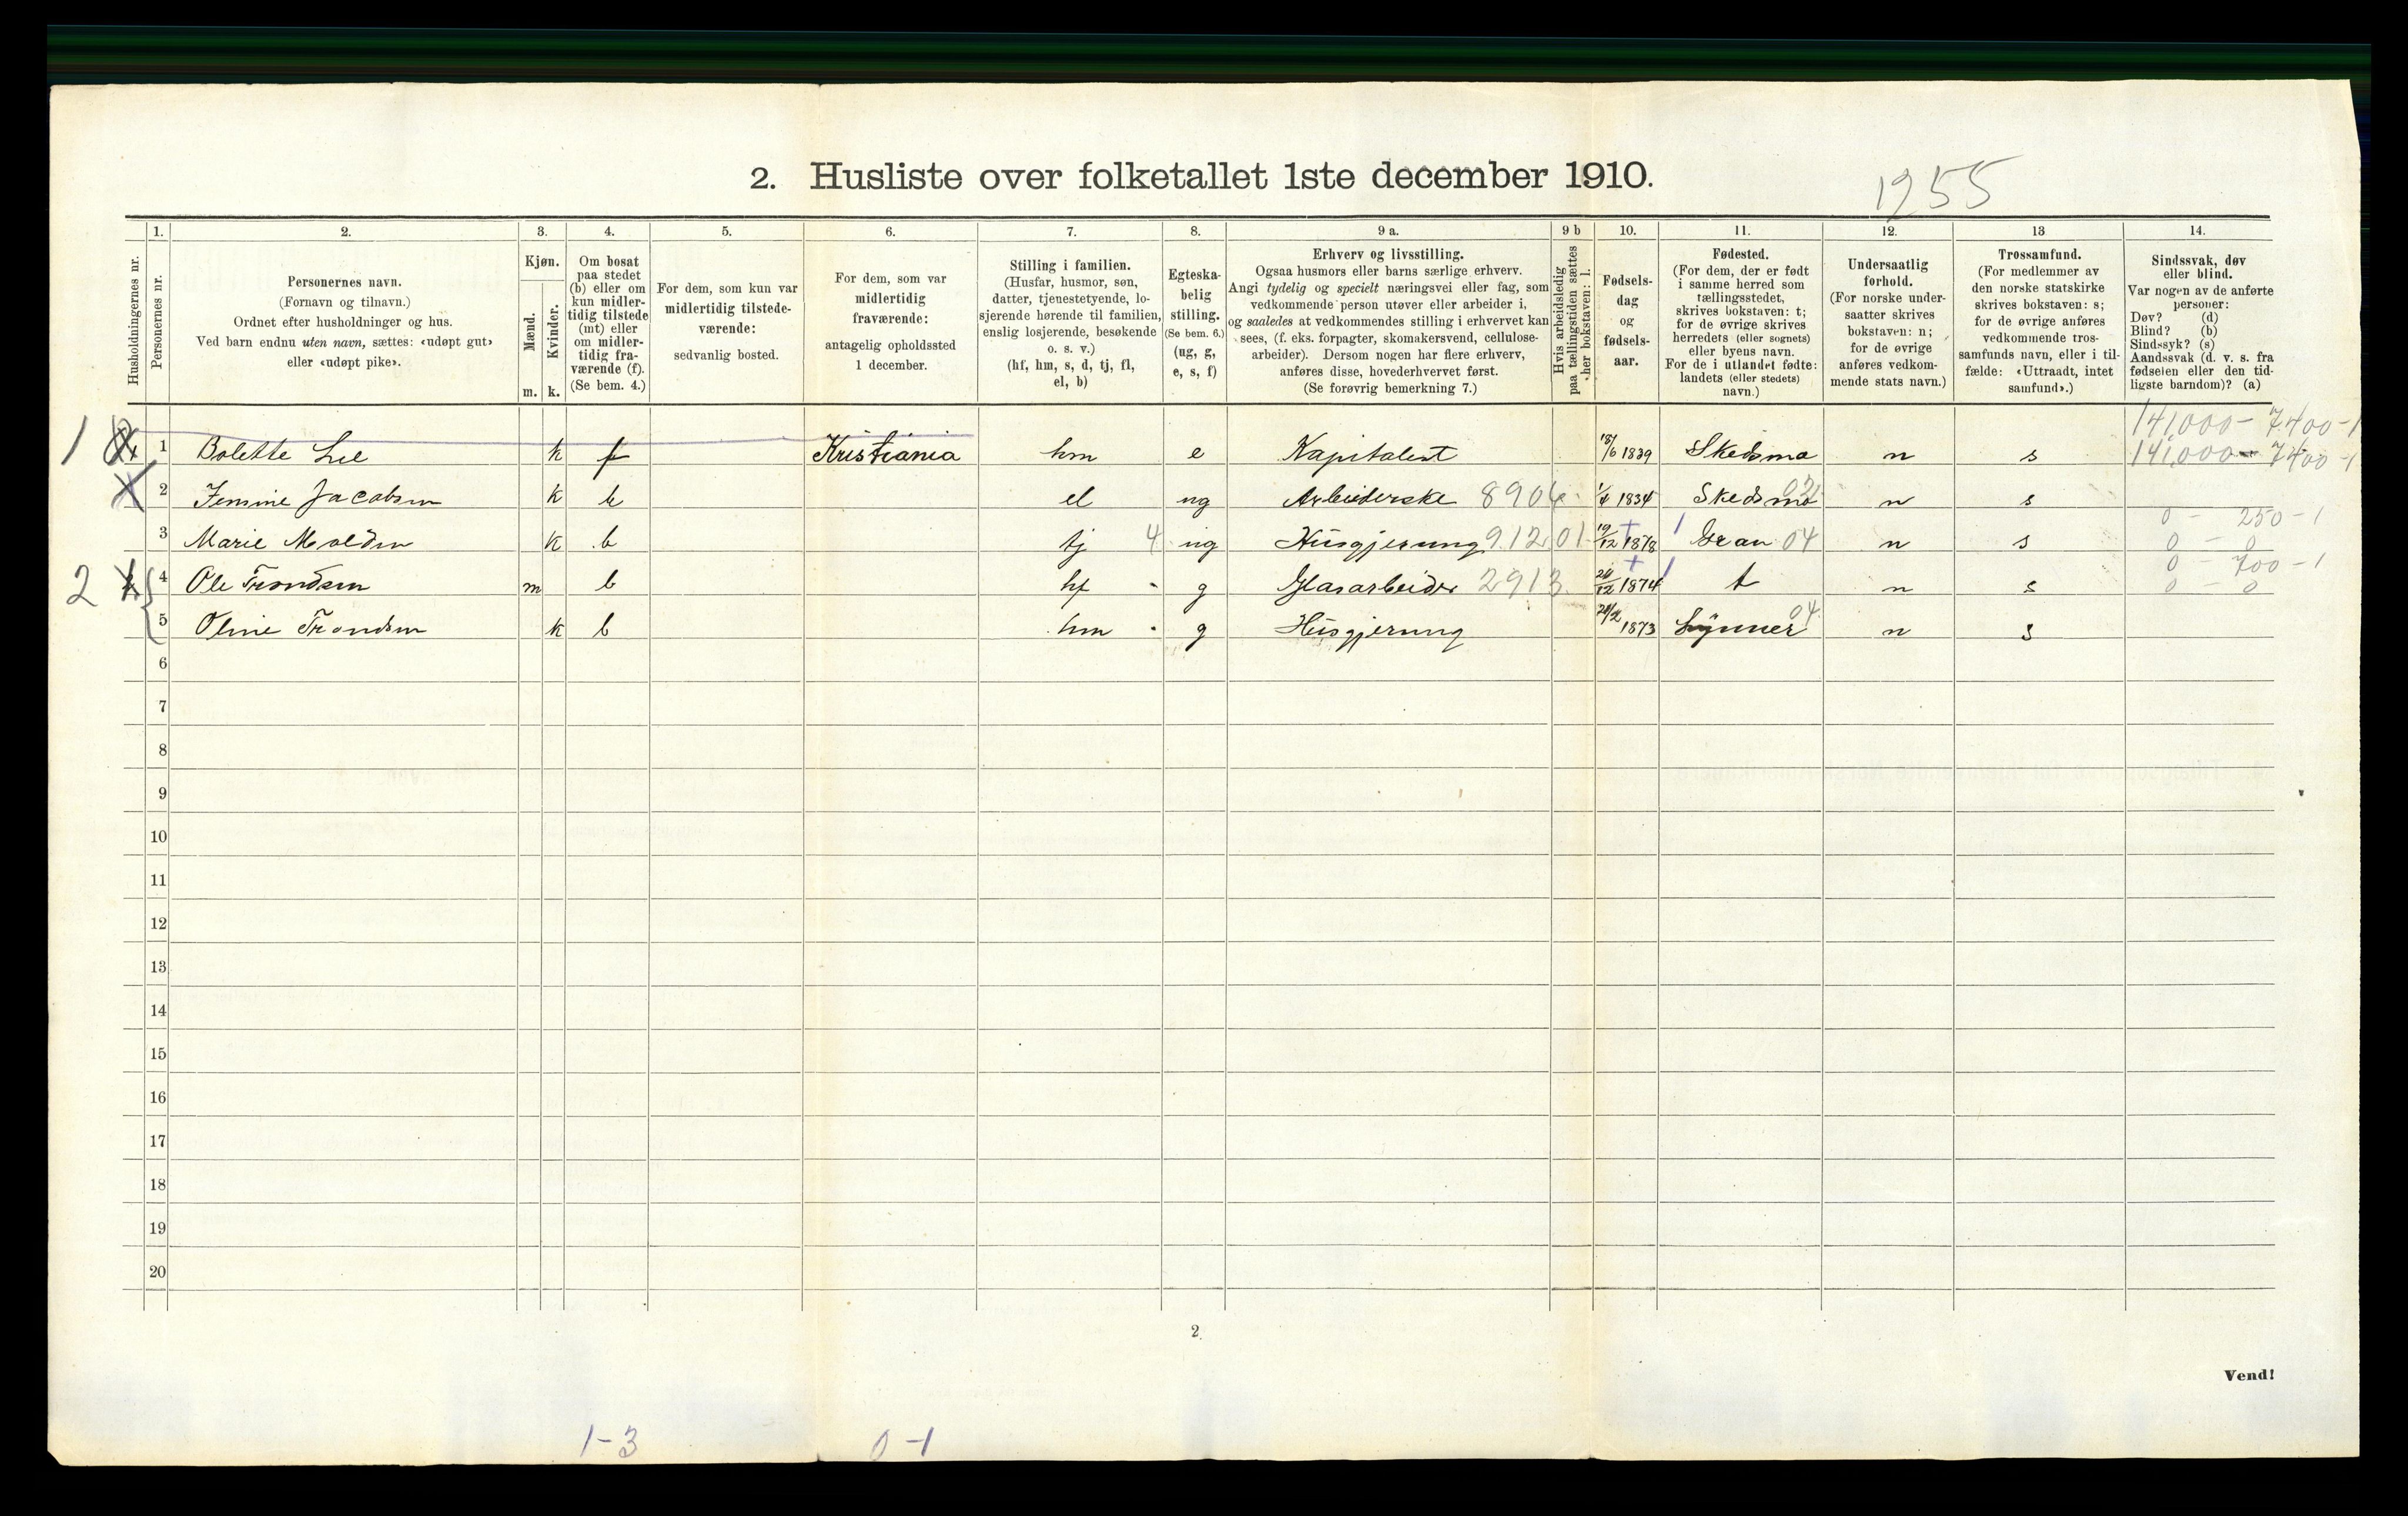 2. Husliste over folketallet 1ste december 1910.
1255
1. 2. 3. 4. 5. 6. 7. 8. 9 a. 9 b 10. 11. 12. 13 14.
Husholdningernes nr.
Personernes nr.
Personernes navn.
(Fornavn og tilnavn.)
Ordnet efter husholdninger og hus.
Ved barn endnu uten navn, sættes: «udøpt gut»
eller «udøpt pike».
Kjøn.
Mænd.
Kvinder.
m. k.
Om bosat
paa stedet
(b) eller om
kun midler-
tidig tilstede
(mt) eller
om midler-
tidig fra-
værende (f).
(Se bem. 4.)
For dem, som kun var
midlertidig tilstede-
værende:
sedvanlig bosted.
For dem, som var
midlertidig
fraværende:
antagelig opholdssted
1 december.
Stilling i familien.
(Husfar, husmor, søn,
datter, tjenestetyende, lo-
sjerende hørende til familien,
enslig losjerende, besøkende
o. s. v.)
(hf, hm, s, d, tj, fl,
el, b)
Egteska-
belig
stilling.
(Se bem. 6.)
(ug, g,
e, s, f)
Erhverv og livsstilling.
Ogsaa husmors eller barns særlige erhverv.
Angi tydelig og specielt næringsvei eller fag, som
vedkommende person utøver eller arbeider i,
og saaledes at vedkommendes stilling i erhvervet kan
sees, (f. eks. forpagter, skomakersvend, cellulose-
arbeider). Dersom nogen har flere erhverv,
anføres disse, hovederhvervet først.
(Se forøvrig bemerkning 7.)
Hvis arbeidsledig
paa tællingstiden sættes
her bokstaven: l.
Fødsels-
dag
og
fødsels-
aar.
Fødested.
(For dem, der er født
i samme herred som
tællingsstedet,
skrives bokstaven: t;
for de øvrige skrives
herredets (eller sognets)
eller byens navn.
For de i utlandet fødte:
landets (eller stedets)
navn.)
Undersaatlig
forhold.
(For norske under-
saatter skrives
bokstaven: n;
for de øvrige
anføres vedkom-
mende stats navn.)
Trossamfund.
(For medlemmer av
den norske statskirke
skrives bokstaven: s;
for de øvrige anføres
vedkommende tros-
samfunds navn, eller i til-
fælde: «Uttraadt, intet
samfund».)
Sindssvak, døv
eller blind.
Var nogen av de anførte
personer:
Døv? (d)
Blind? (b)
Sindssyk? (s)
Aandssvak (d. v. s. fra
fødselen eller den tid-
ligste barndom)? (a)
141,000 - 7400 - 1
1 1 Bolette Lie k f Kristiania hm e Kapitalist 18/6 1839 Skedsmo n s 141,000 - 7400 - 1
2 Jensine Jacobsen k b el ug Arbeiderske 8906 1/4 1834 Skedsmo n s
0 - 250 - 1
3 Marie Molden k b tj 4 ug Husgjerning 912 01 19/12 1878 Gran 04 n s 0 - 0
0 - 700 - 1
2 4 Ole Trondsen m b hf g Glasarbeider 2913 1874 t n s 0 - 0
5 Oline Trondsen k b hm g Husgjerning 1873 04 n s
6
7
8
9
10
11
12
13
14
15
16
17
18
19
20
2
Vend!
1-3 0-1